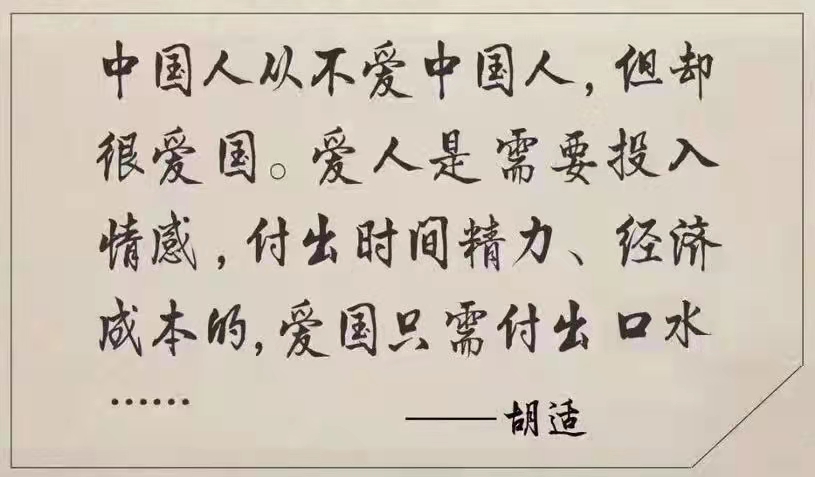 中国人从不爱中国人，但却
很爱国。爱人是需要投入
情感，付出时间精力、经济
成本的，爱国只需付出口水
……
——胡适